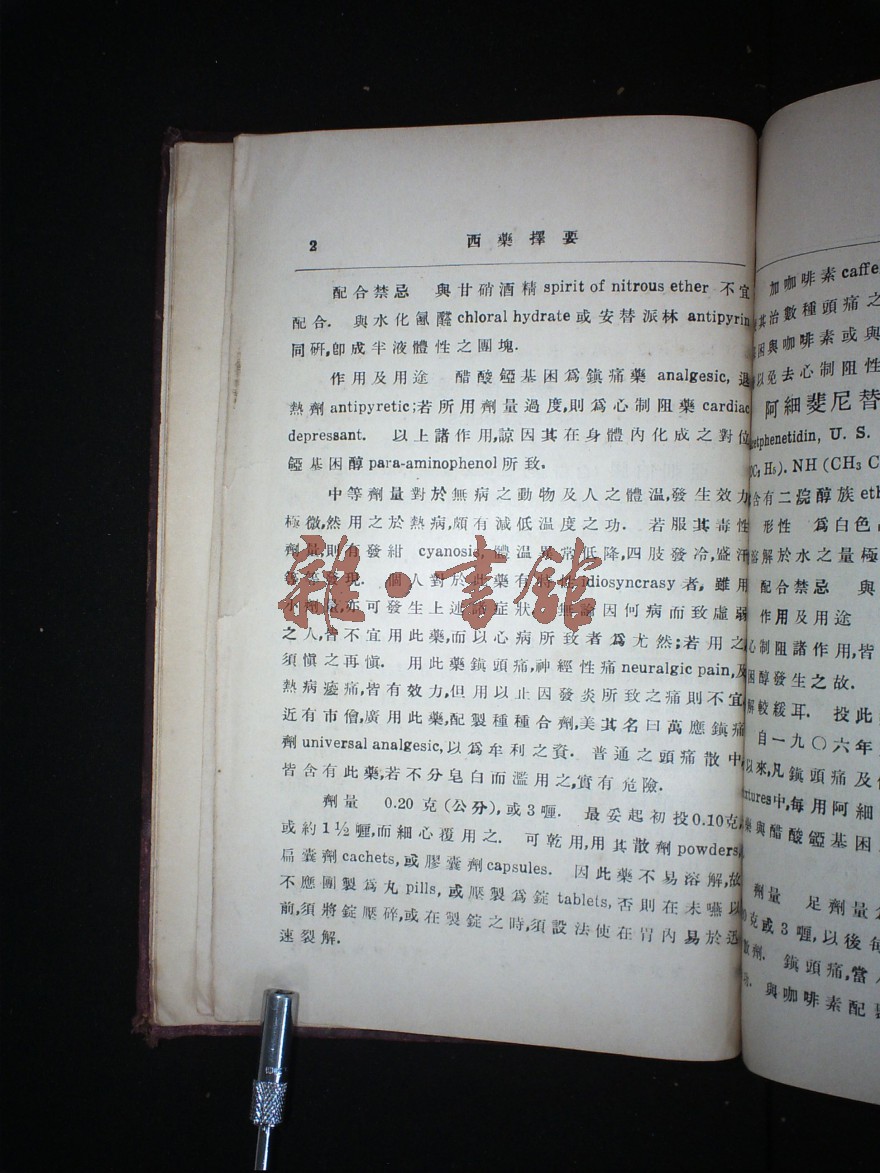 2
西藥擇要
配合禁忌 與甘硝酒精 spirit of nitrous ether 不宜
配合. 與水化氯醛 chloral hydrate 或安替派林 antipyrin
同研,卽成半液體性之團塊.
作用及用途 醋酸錏基困爲鎮痛藥 analgesic, 退
熱劑 antipyretic;若所用劑量過度,則爲心制阻藥 cardiac
depressant. 以上諸作用,諒因其在身體內化成之對位
錏基困醇 para-aminophenol 所致.
中等劑量對於無病之動物及人之體温,發生效力
極微,然用之於熱病,頗有減低温度之功. 若服其毒性
劑量,則有發紺 cyanosis, 體溫異常低降,四肢發冷,盛汗
等等發現. 個人對於此藥有 性 idiosyncrasy 者, 雖用
小 亦可發生上述 症狀 無論因何病而致虛弱
之人,皆不宜用此藥,而以心病所致者爲尤然;若用之,
須愼之再愼. 用此藥鎮頭痛,神經性痛 neuralgic pain,及
熱病痠痛,皆有效力,但用以止因發炎所致之痛則不宜.
近有市儈,廣用此藥,配製種種合劑,美其名曰萬應鎮痛
劑 universal analgesic,以爲牟利之資. 普通之頭痛散中,
皆含有此藥,若不分皂白而濫用之,實有危險.
劑量 0.20 克 (公分), 或 3 喱. 最妥起初投 0.10 克,
或約 1½ 喱,而細心覆用之. 可乾用,用其散劑 powders,
扁囊劑 cachets, 或膠囊劑 capsules. 因此藥不易溶解,故
不應團製爲丸 pills, 或壓製爲錠 tablets, 否則在未嚥以
前,須將錠壓碎,或在製錠之時,須設法使在胃內易於迅
速裂解.
雜·書館
加咖啡素 caffe
其治數種頭痛之
困與咖啡素或與
以免去心制阻性
阿細斐尼替
etphenetidin, U. S.
OC₂ H₅). NH (CH₃ C
含有二烷醇族 eth
形性 爲白色
溶解於水之量極
配合禁忌 與
作用及用途
心制阻諸作用,皆
困醇發生之故.
解較緩耳. 投此
自一九〇六年
以來,凡鎮頭痛及
xtures 中,每用阿細
藥與醋酸錏基困
劑量 足劑量
克或 3 喱, 以後每
散劑. 鎮頭痛,當
功. 與咖啡素配